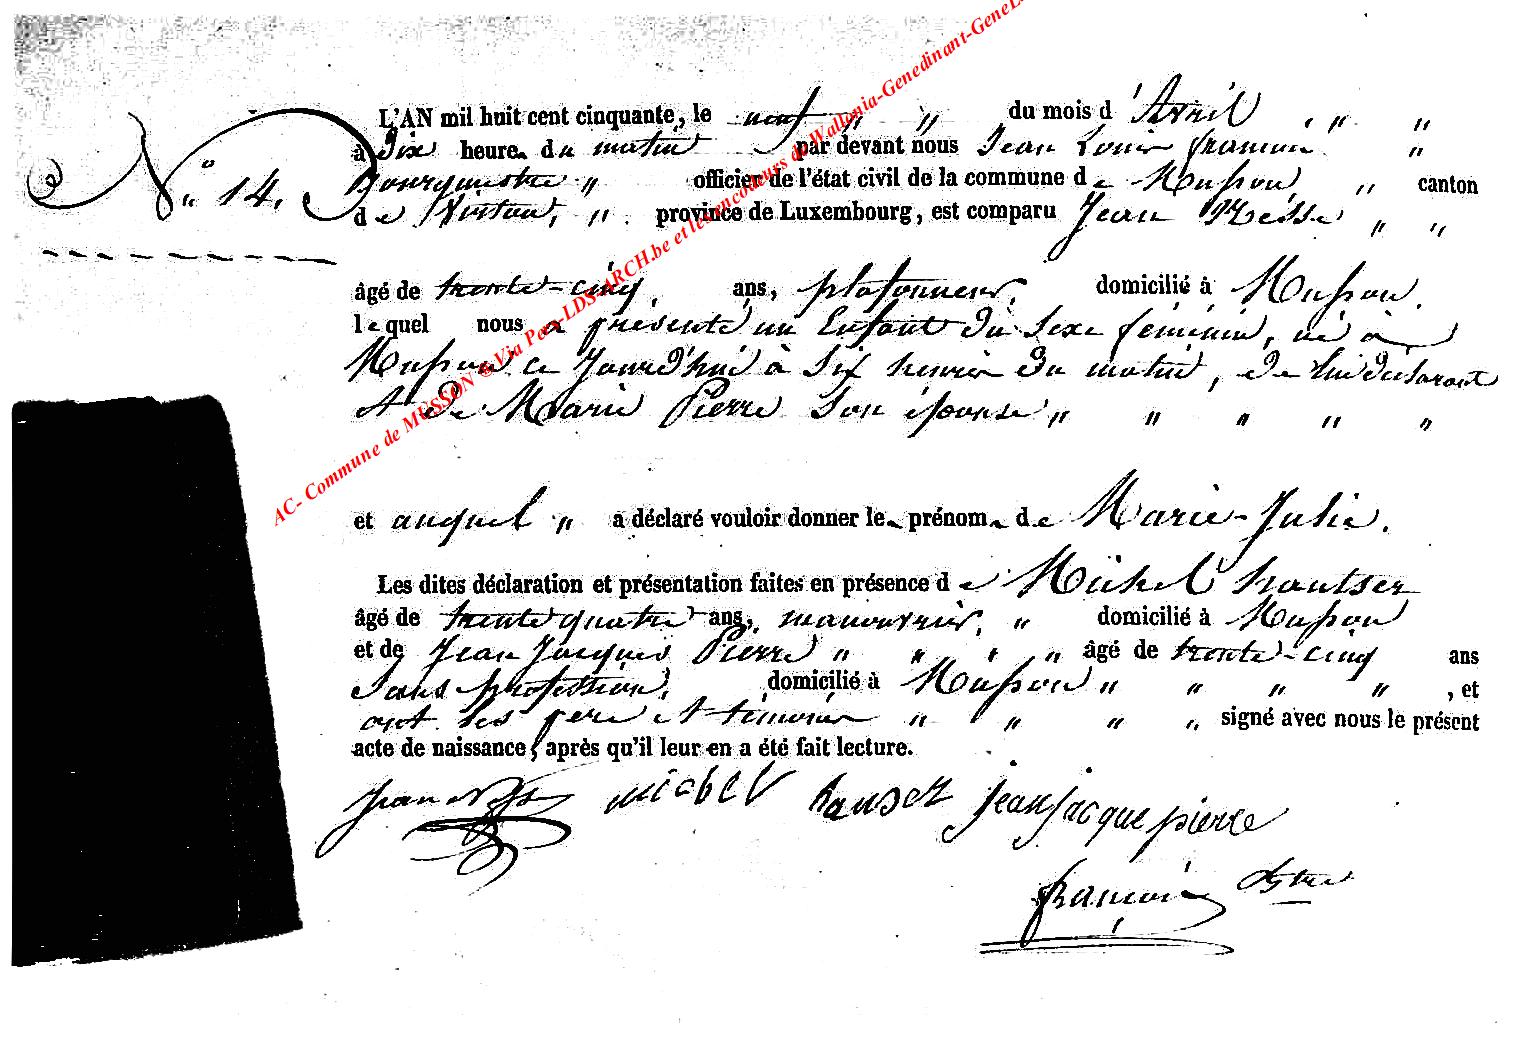 L'AN mil huit cent cinquante, le neuf " " du mois d'Avril, " "
N.° 14.
à Dix heure du matin par devant nous Jean Louis françois "
Bourgmestre " officier de l'état civil de la commune de Musson " canton
de Virton, " province de Luxembourg, est comparu Jean Hesse " "
âgé de trente-cinq, ans, plafonneur, domicilié à Musson.
lequel nous a présenté un Enfant du sexe féminin, né à
Musson ce Jourd'hui à six heures du matin, de lui déclarant
et de Marie Pierre son épouse " " " " "
et auquel " a déclaré vouloir donner le prénom de Marie-Julie.
Les dites déclaration et présentation faites en présence de Michel hautser
âgé de trente quatre ans, manouvrier, " domicilié à Musson
et de Jean Jacques Pierre " " " " âgé de trente-cinq ans
sans profession, domicilié à Musson " " " " , et
ont les père et témoins " " " " signé avec nous le présent
acte de naissance, après qu'il leur en a été fait lecture.
michel hauset jean jacque pierre
françois Bgtre
AC- Commune de MUSSON @ Via Pers-LDS-ARCH.be et les encodeurs de Wallonia-Genedinant-GeneL